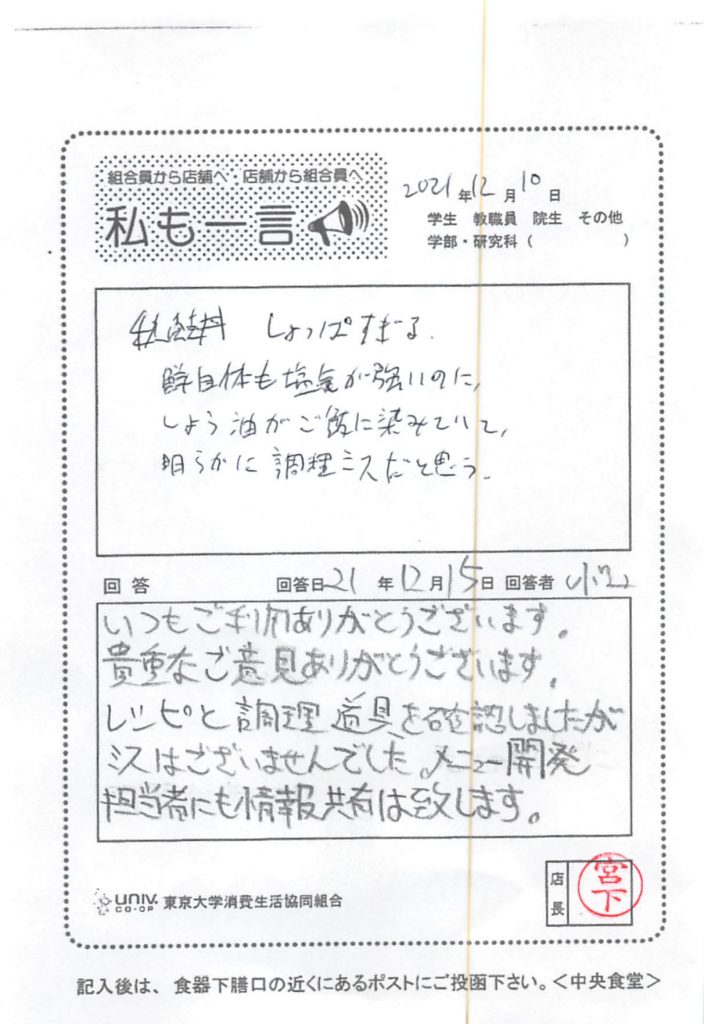 組合員から店舗へ・店舗から組合員へ
私も一言
2021年12月10日
学生 教職員 院生 その他
学部・研究科( )
しょっぱすぎる.
自体も塩気が強いのに,
しょう油がご飯に染みていて,
明らかに調理ミスだと思う.
回答 回答日21年12月15日 回答者
いつもご利用ありがとうございます。
貴重なご意見ありがとうございます。
レシピと調理道具を確認しましたが
ミスはございませんでした。メニュー開発
担当者にも情報共有は致します。
UNIV. CO-OP 東京大学消費生活協同組合
店長 宮下
記入後は、食器下膳口の近くにあるポストにご投函下さい。<中央食堂>